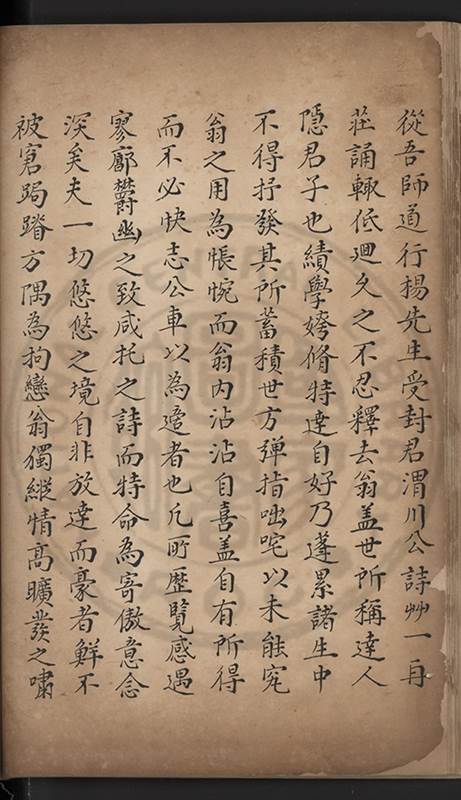 從吾師道行楊先生受封君渭川公詩艸一再
莊誦輒低廻久之不忍釋去翁盖世所稱達人
隱君子也績學姱脩特達自好乃蓬累諸生中
不得抒發其所蓄積世方彈指咄咤以未能究
翁之用為悵惋而翁內沾沾自喜盖自有所得
而不必快志公車以為適者也凡所歷覽感遇
寥廓欝幽之致咸托之詩而特命為寄傲意念
深矣夫一切悠悠之境自非放達而豪者鮮不
被窘跼蹐方隅為拘戀翁獨縱情高曠發之嘯